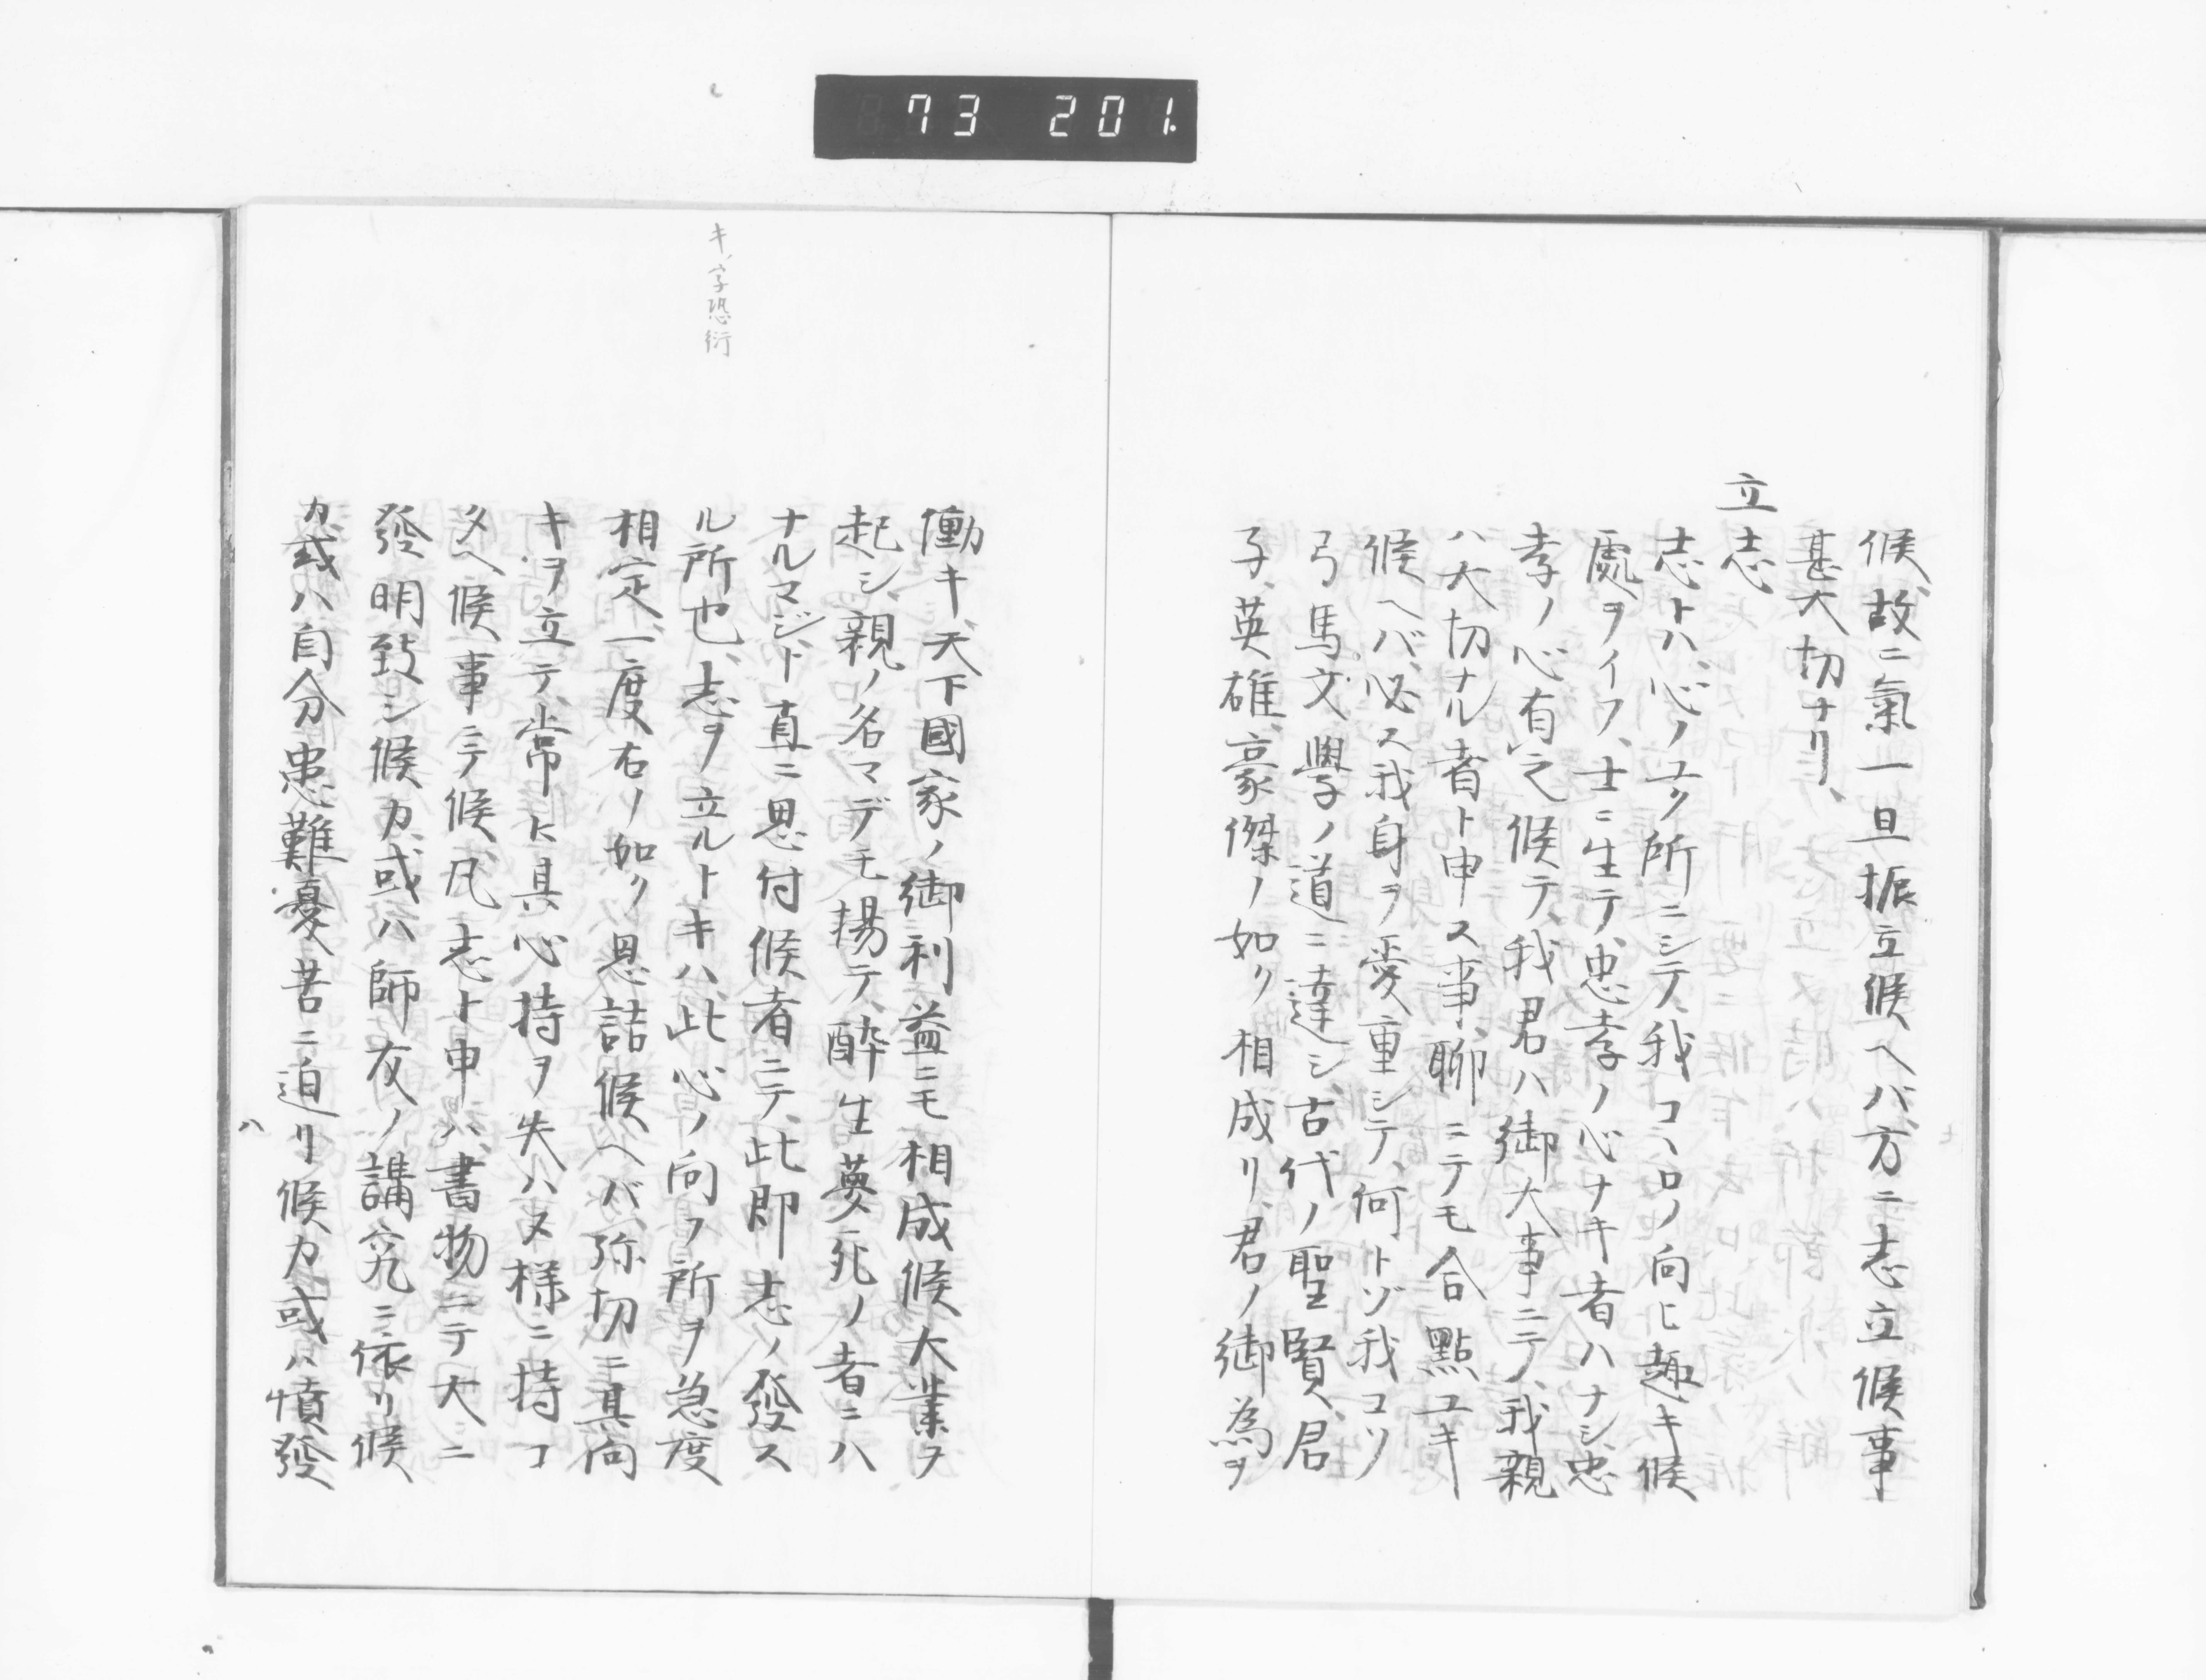 73 201.
候、故ニ氣一旦振立候ヘバ、方ニ志立候事
甚大切ナリ、
立志
志トハ、心ノユク所ニシテ、我コヽロノ向ヒ趣キ候
處ヲイフ、士ニ生テ、忠孝ノ心ナキ者ハナシ、忠
孝ノ心有之候テ、我君ハ御大事ニテ、我親
ハ大切ナル者ト申ス事、聊ニテモ合點ユキ
候ヘバ、必ス我身ヲ愛重シテ、何トゾ我コソ
弓馬文學ノ道ニ達シ、古代ノ聖賢、君
子、英雄、豪傑ノ如ク相成リ、君ノ御為ヲ
働キ、天下國家ノ御利益ニモ相成候大業ヲ
起シ、親ノ名マデモ揚テ、酔生夢死ノ者ニハ
ナルマジト、直ニ思付候者ニテ、此即志ノ發ス
ル所也、志ヲ立ルトキハ、此心ノ向フ所ヲ急度
キノ字恐衍
相定、一度右ノ如ク思詰候ヘバ弥切ニ其向
キヲ立テ、常ヒ其心持ヲ失ハヌ様ニ持コ
タヘ候事ニテ候、凡志ト申ハ、書物ニテ大ニ
發明致シ候カ、或ハ師友ノ講究ニ依リ候
カ、或ハ自分患難憂苦ニ迫リ候カ、或ハ憤發
ハ